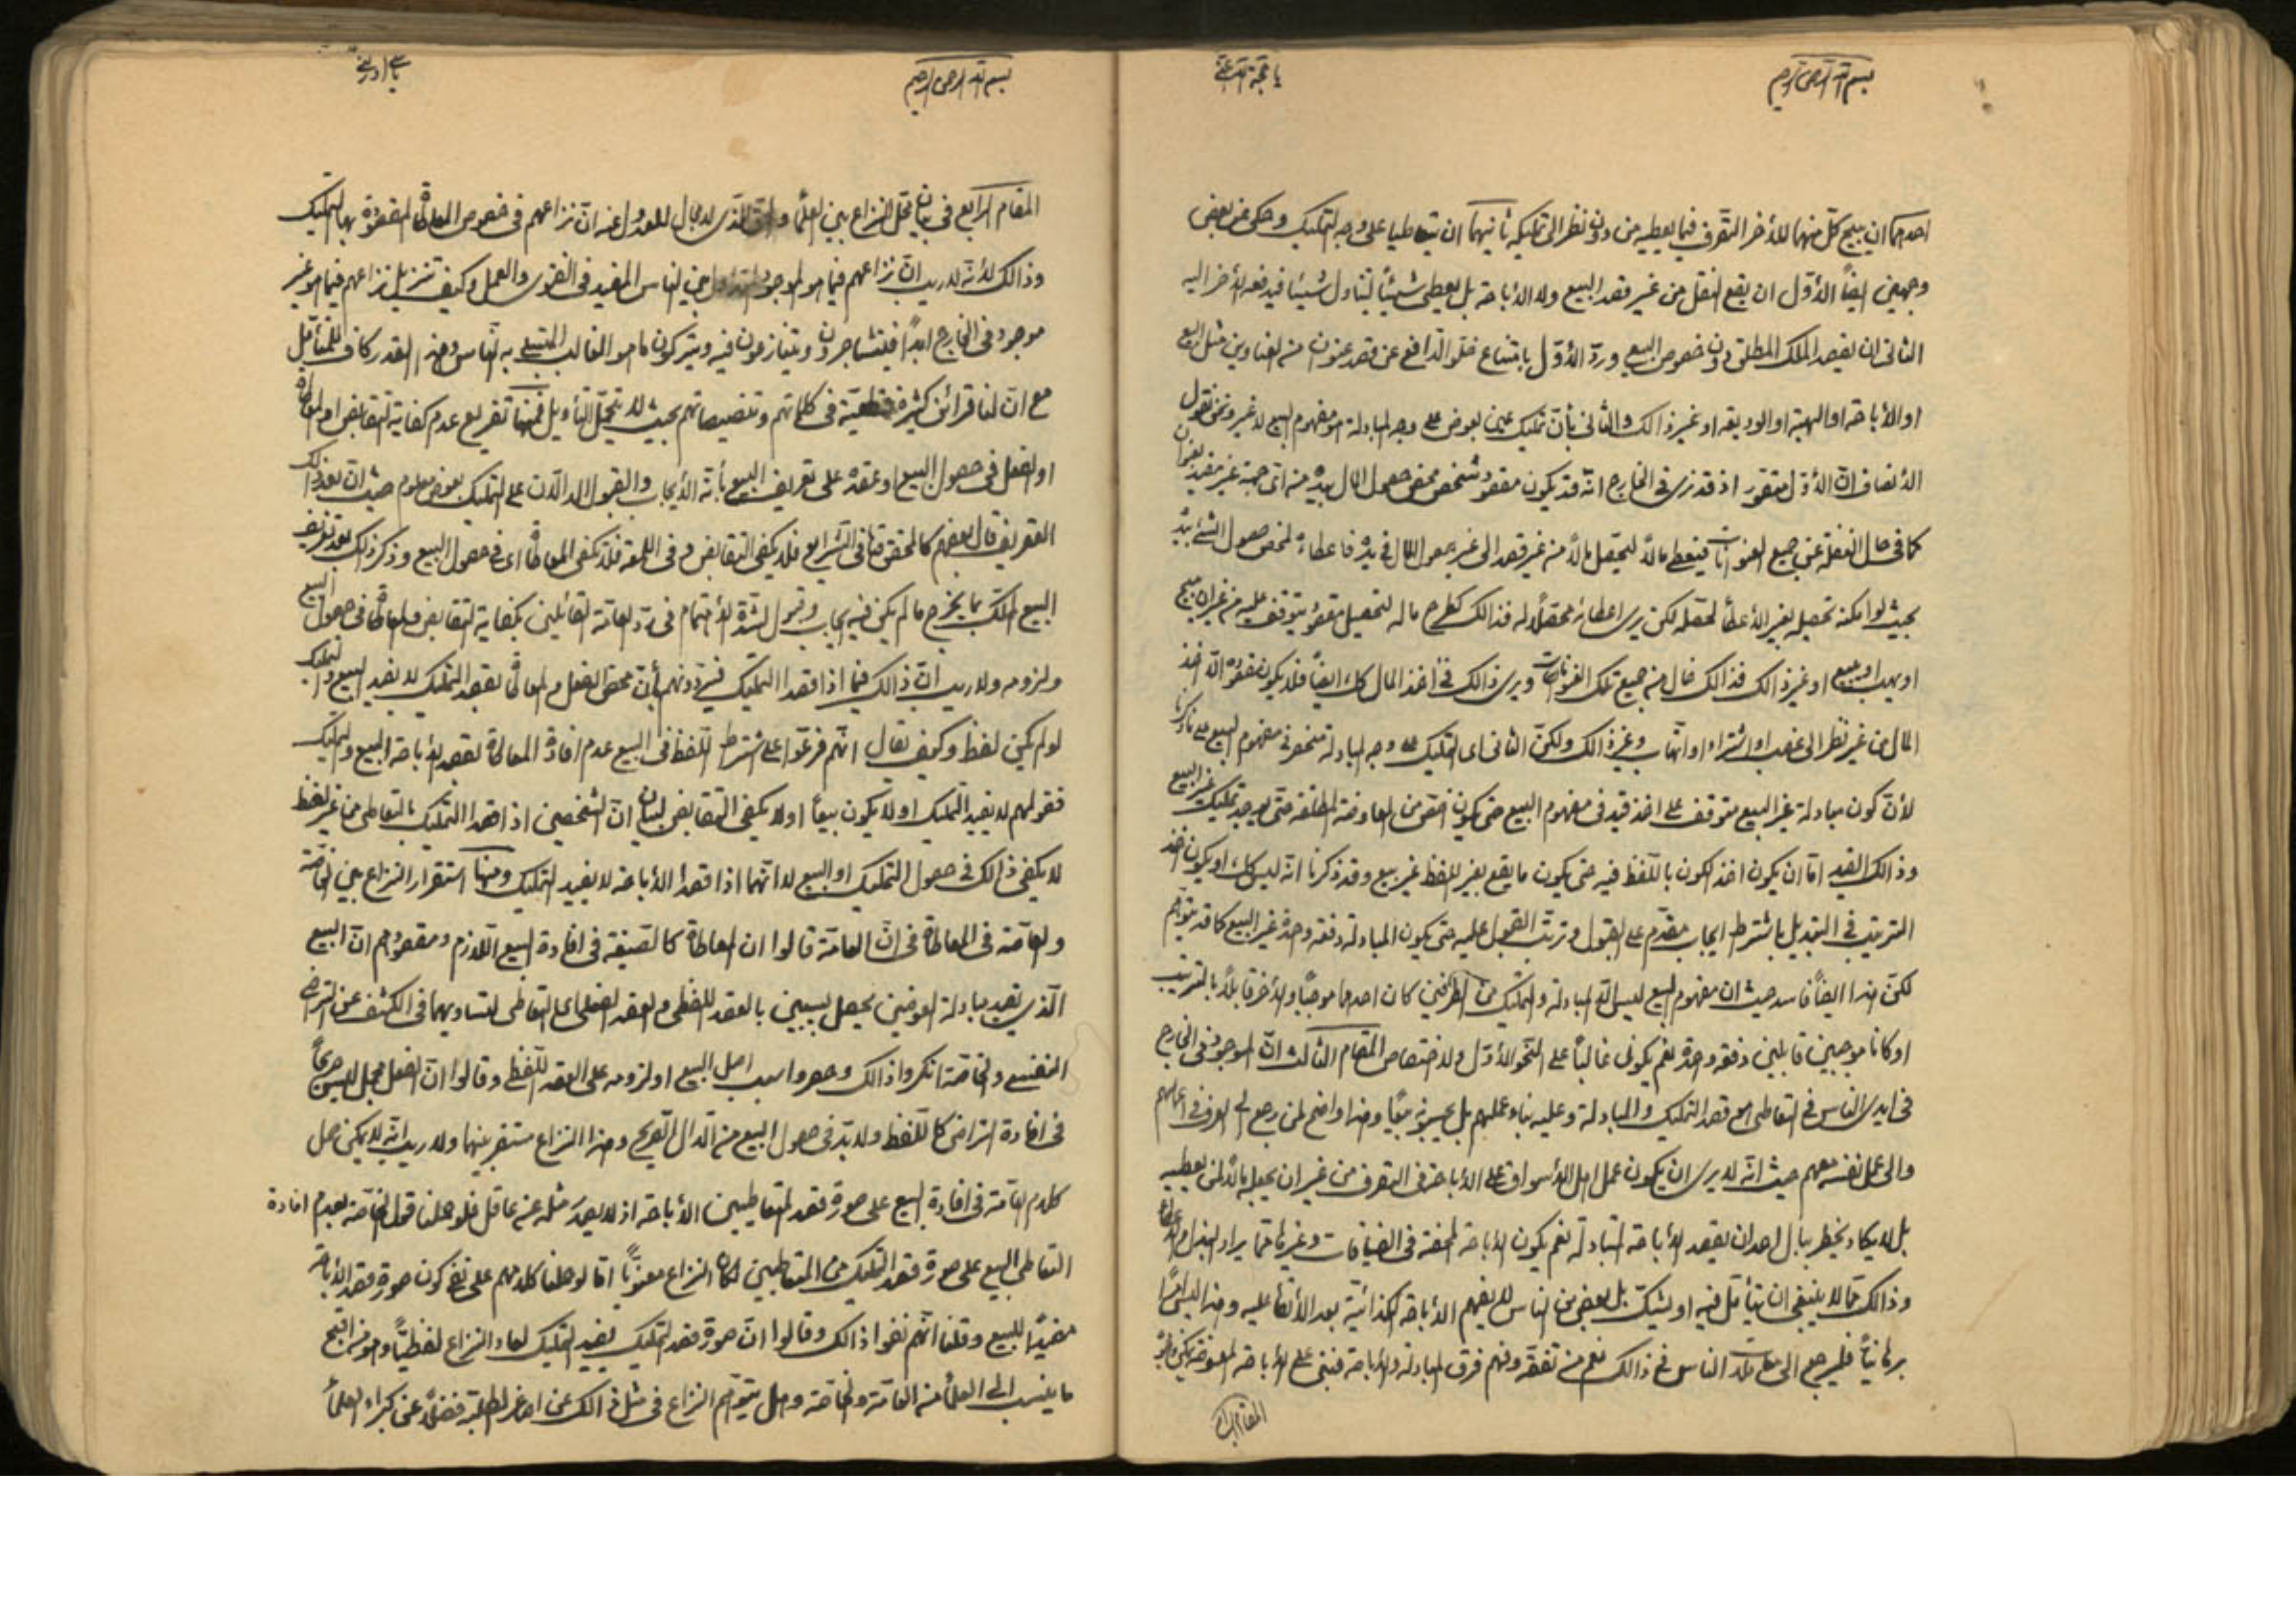 بسم الله الرحمن الرحيم
احدهما ان يبيح كلّ منهما للأخر التصّرف فيما يعطيه من دون نظر الى تمليكه ثانيهما ان يتعاطيا على وجه التمليك وحكى عن بعض
وجهين ايضاً الأوّل ان يقع النقل من غير قصد البيع ولا الأباحة بل يعطى شيئاً ليتناول شيئاً فيدفعه الأخر اليه
الثانى ان يقصد الملك المطلق دون خصوص البيع وردّ الأوّل بامتناع خلوّ الدّافع عن قصد عنوان من العناوين مثل البيع
او الأباحة او الهبة او الوديعة او غير ذالك والثانى بأنّ تمليك عين بعوض على وجه المبادلة هو مفهوم البيع لا غير ونحن نقول
الأنصاف انّ الأوّل متصّور اذ قد نرى فى الخارج انّه قد يكون مقصود شخص محض حصول المال بيده من اىّ جهة غير مقيد بعنوان
كما فى حال الغفلة عن جميع العنوانات فيعطى مالاً ليحصّل مالاً من غير قصد الى غير حصول المال فى يده فاعطاءه لمحض حصول الشئ بيده
بحيث لو امكنه تحصيله بغير الأعطاء لحصّله لكن يرى اعطائه محصّلاً له فذالك كطرح ماله لتحصيل مقصود يتوقف عليه من غير ان يبيح
او يهب او يبيع او غير ذالك فذالك خال من جميع تلك العنوانات ويرى ذالك فى اخذ المال كل ايضاً فلا يكون مقصوده الّا اخذ
المال من غير نظر الى غصب او اشتراء او اتّهاب وغير ذالك ولكنّ الثانى اى التمليك على وجه المبادلة منحصر فى مفهوم البيع على ما ذكرنا
لأنّ كون مبادلة غير البيع متوقف على اخذ قيد فى مفهوم البيع حتى يكون اخصّ من المعاوضة المطلقة حتّى يوجد تمليك غير البيع
وذالك القيد امّا ان يكون اخذ الكون باللّفظ فيه حتى يكون ما يقع بغير اللفظ غير بيع وقد ذكرنا انّه ليس كل، او يكون اخذ
الترتيب فى التبديل باشتراط ايجاب مقدّم على القبول وترتّب القبول عليه حتى يكون المبادلة دفعة واحدة غير البيع كما قد يتوّهم
لكنّ هذا ايضاً فاسد حيث ان مفهوم البيع ليس الّا المبادلة والتمليك من الطرفين كان احدهما موجباً والأخر قابلاً بالترتيب
او كانا موجبين قابلين دفعة واحدة نعم يكون غالباً على النّحو الأوّل ولا اختصاص المقام الثّالث انّ الموجود فى الخارج
فى ايدى النّاس فى التعاطى هو قصد التمليك والمبادلة وعليه بناء عملهم بل يحسبونه بيعًا وهذا واضح لمن رجع الى العرف فى اعمالهم
والى عمل نفسه معهم حيث انّه لا يرى ان يكون عمل اهل الأسواق على الأباحة فى التصرف من غير ان يجعله مالاً لمن يعطيه
بل لا يكاد يخطر ببال احد ان يقصد الأباحة المتبادلة نعم يكون الأباحة المحضة فى الضيافات وغيرها ممّا يراد البذل والاعطاء
وذالك ممّا لا ينبغى ان يتأمّل فيه او يشكّ بل بعض من النّاس لا يفهم الأباحة الكذائية بعد الألقاء عليه وهذا ليس امرًا
برهانيّاً فليرجع الى معاملات النّاس فى ذالك نعم من تفقّه وفهم فرق المبادلة والأباحة فبنى على الأباحة المعوضة
المقام الرابع
بسم الله الرحمن الرحيم
المقام الرابع فى بيان محل النزاع بين العلمآء والحق الّذى لا مجال للعدول عنه انّ نزاعهم فى خصوص المعاطاة المقصود بها التمليك
وذالك لأنّه لا ريب انّ نزاعهم فيما هو الموجود المتداول بين النّاس المفيد فى الفتوى والعمل وكيف تنزيل نزاعهم فيما هو غير
موجود فى الخارج ابداً فيتشاجرون ويتنازعون فيه ويتركون ما هو الغالب المتبع به النّاس وهذا القدر كاف للمتأمّل
مع انّ لنا قرائن كثيرة قطعيّة فى كلماتهم وتنصيصاتهم بحيث لا يتحمّل التأويل فمنها تفريع عدم كفاية التقابض او المعاطاة
او الفعل فى حصول البيع او عقده على تعريف البيع بأنّه الأيجاب والقبول الدالّان على التمليك بعوض معلوم حيث انّ بعد ذالك
التعريف قال بعضهم كالمحقق قال فى الشرايع فلا يكفى التقابض وفى اللمعة فلا تكفى المعاطاة اى فى حصول البيع وذكر ذلك بعد تعريف
البيع الملك بما يخرج ما لم يكن فيه ايجاب وقبول لشدّة الأهتمام فى ردّ العامّة القائلين بكفاية التقابض والمعاطاة فى حصول البيع
ولزومه ولا ريب انّ ذالك فيما اذا قصدا التمليك فيردّونهم بأنّ محض الفعل والمعاطاة بقصد التمليك لا يفيد البيع والتمليك
لو لم يكن لفظ وكيف يقال انّهم فرّعوا على اشتراط اللّفظ فى البيع عدم افادة المعاطاة بقصد الأباحة البيع والتمليك
فقولهم لا يفيد التمليك او لا يكون بيعاً او لا يكفى التقابض لبيان انّ الشخصين اذ قصدا التمليك بالتعاطى من غير لفظ
لا يكفى ذالك فى حصول التمليك او البيع لا انّهما اذا قصدا الأباحة لا يفيد التمليك ومنها استقرار النزاع بين الخاصّة
والعامّة فى المعاطاة فى انّ العامّة قالوا ان المعاطاة كالصّيغة فى افادة البيع اللّازم ومقصودهم انّ البيع
الّذى يقصد مبادلة العوضين يحصل بسببين بالعقد اللفظى والعقد الفعلى اى التعاطى لتساويهما فى الكشف عن التراضى
النفسى والخاصّة انكروا ذالك وحصروا سبب اصل البيع او لزومه على العقد اللّفظى وقالوا انّ الفعل مجمل ليس صريحاً
فى افادة التراضى كاللّفظ ولا بدّ فى حصول البيع من الدّال الصّريح وهذا النزاع مستقر بينهما ولا ريب انّه لا يمكن حمل
كلام العامّة فى افادة البيع على صورة قصد المتعاطيين الأباحة اذ لا يصدر مثله عن عاقل فلو حملنا قول الخاصّة بعدم افادة
التعاطى البيع على صورة قصد التمليك من المتعاطيين لكان النزاع معنويّاً امّا لو حملنا كلامهم على نفى كون صورة قصد الأباحة
مفيدًا للبيع وقلنا انّهم نفوا ذالك وقالوا انّ صورة قصد التمليك يفيد التمليك لعاد النزاع لفظيّاً وهو من اقبح
ما ينسب الى العلمآء من العامّة والخاصّة وهل يتوّهم النزاع فى مثل ذالك عن اصاغر الطلبة فضلاً عن كبراء العلمآء